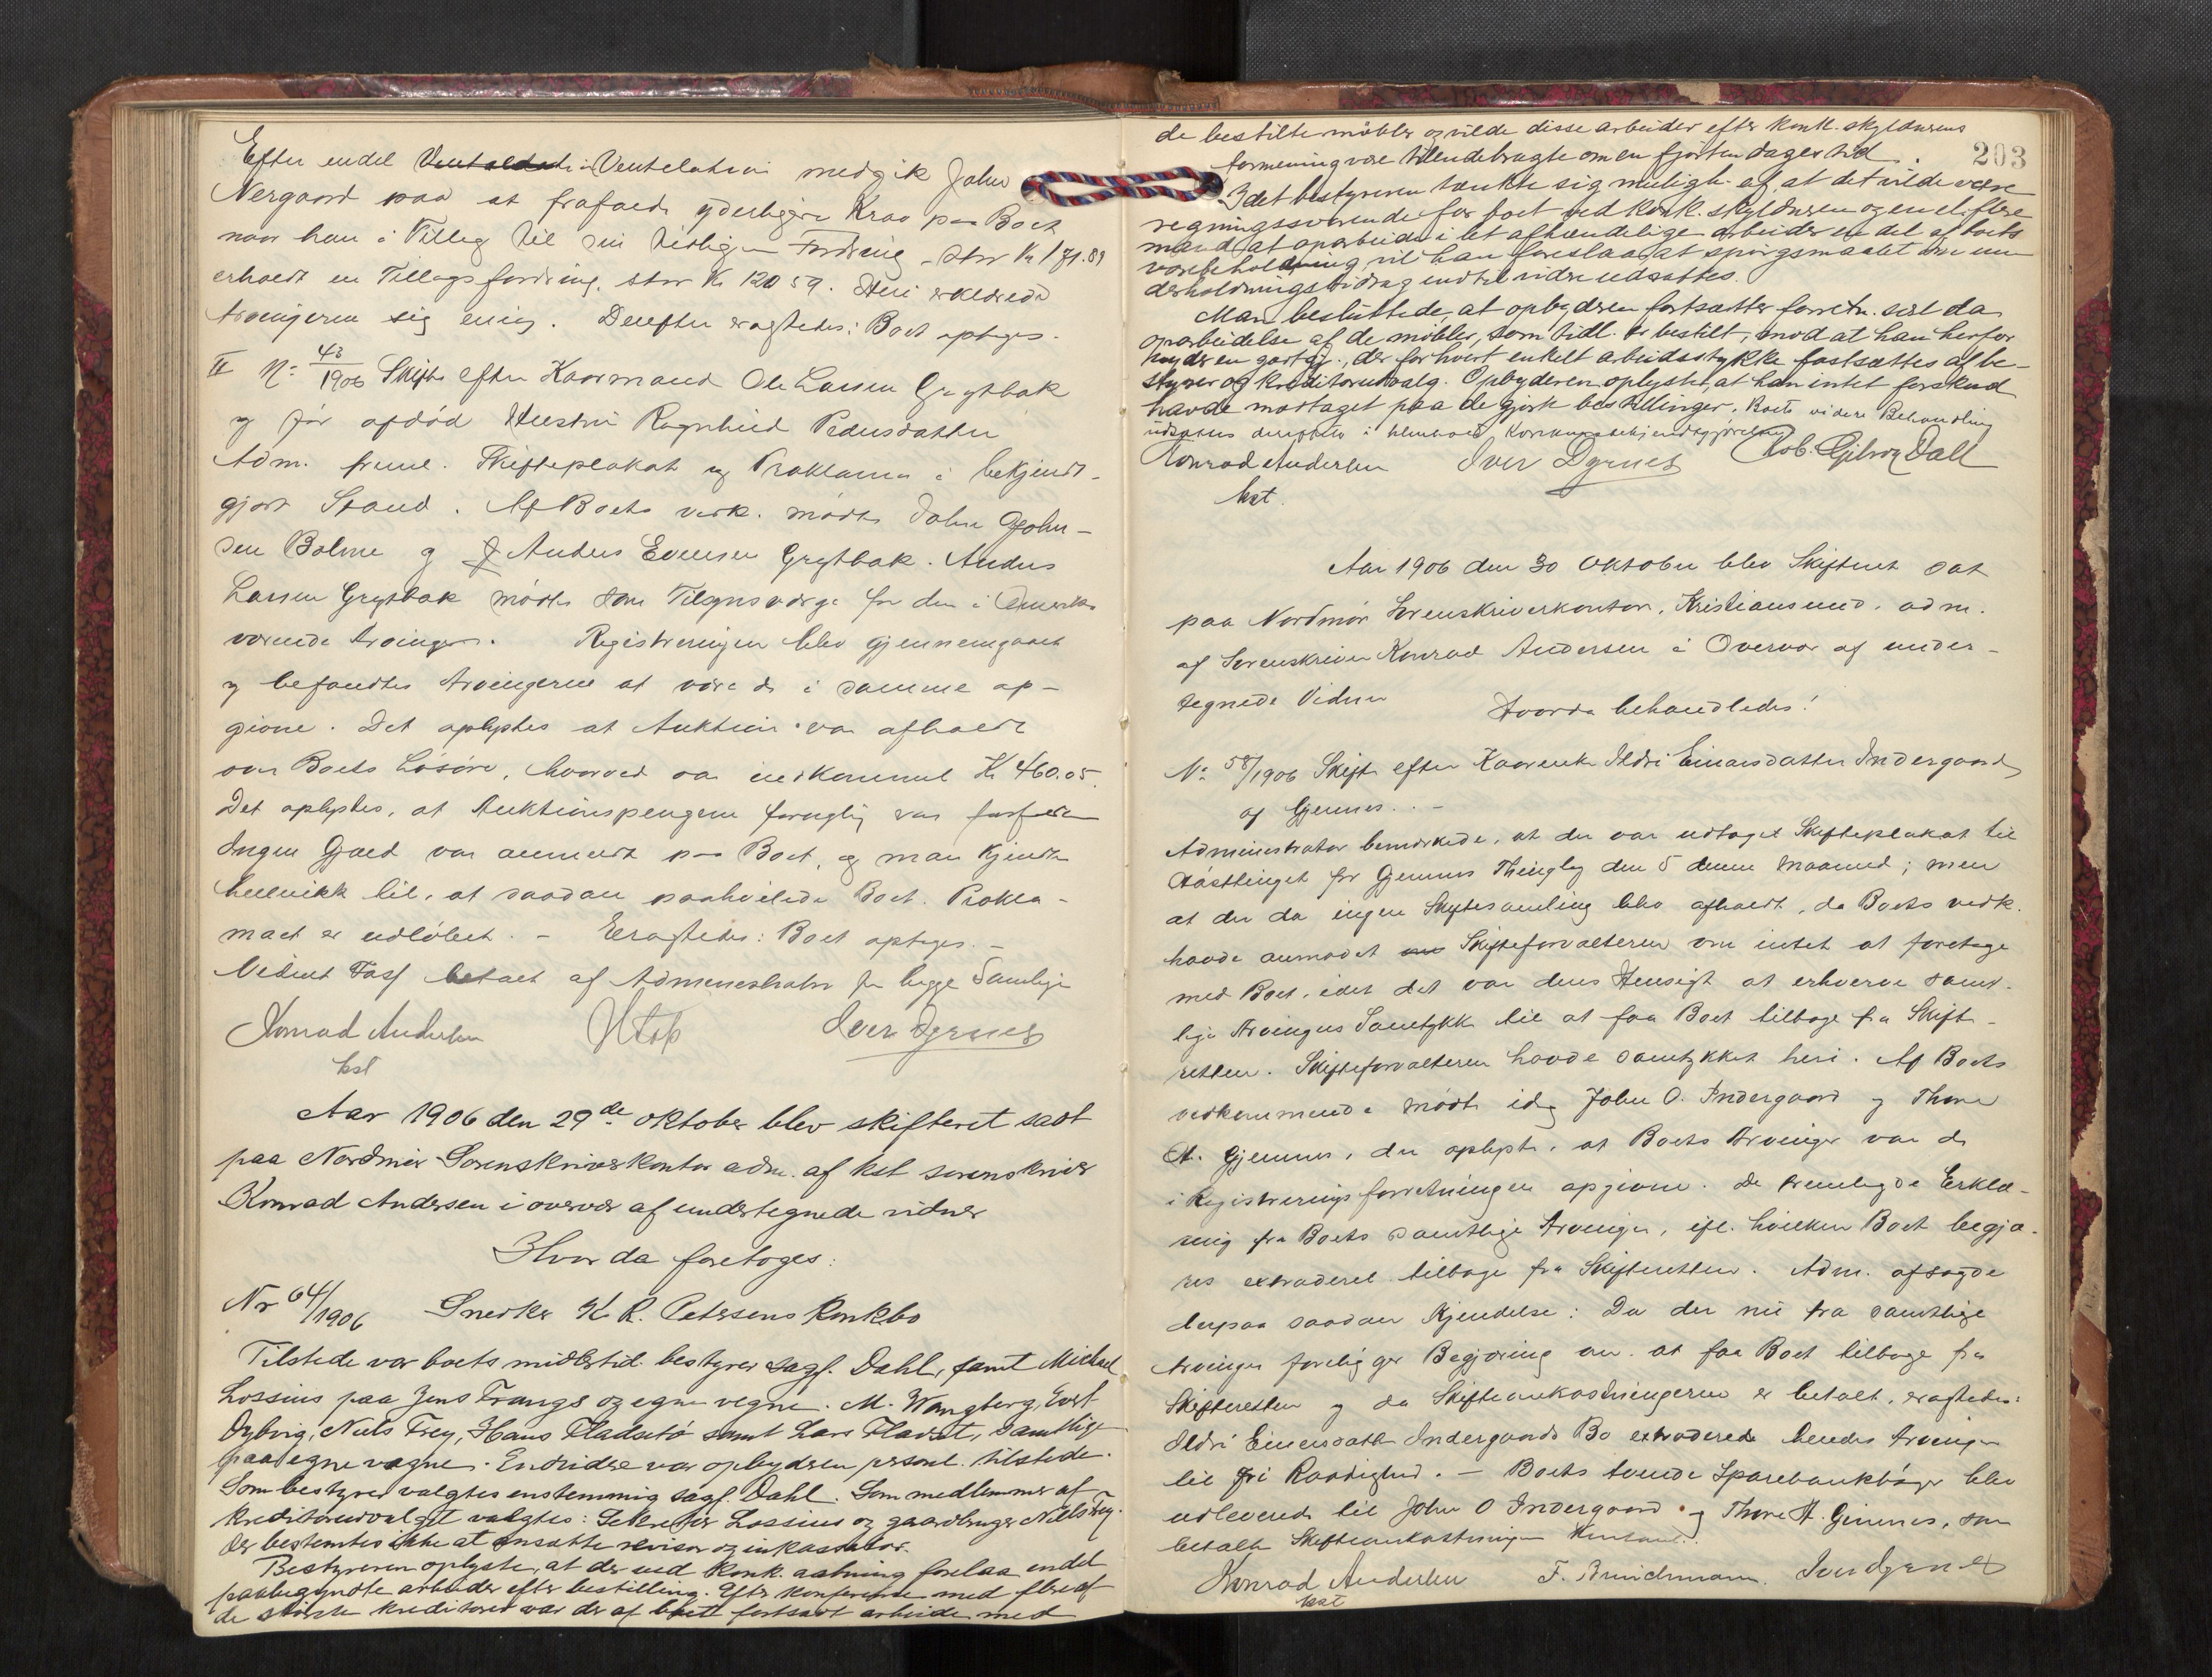 Efter endel i Ventelation medgik John
Nergaard paa at frafalde yderligere Krav paa Boet
naar han i Tillæg til sin tidligere Fordring stor Kr 171.89
erholdt en Tillægsfordring stor Kr 120 59. Heri erklærede
Arvingerne sig enig. Derefter eragtedes: Boet optages.
II No 43/1906 Skifte efter Kaarmand Ole Larsen Grytbak
og før afdød Hustru Ragnhild Pedersdatter
Adm. freml. Skifteplakat og Proklama i bekjendt-
gjort Stand. Af Boets vedk. mødte John John-
sen Bolme og Anders Evensen Grytbak. Anders
Larsen Grytbak mødte som Tilsynsværge for den i Amerika
værende Arving. Registreringen blev gjennemgaaet
og befandtes Arvingerne at være de i samme op-
givne. Det oplystes at Auktion var afholdt
over Boets Løsøre, hvorved var indkommet Kr 460.05.
Det oplystes, at Auktionspengene
Ingen Gjæld var anmeldt paa Boet, og man kjendte
heller ikke til, at saadan paahvilede Boet. Prokla-
maet er udløbet. - Eragtedes: Boet optages. -
Vidnet Fasf betalt af Administrator for begge Samlinger
Konrad Andersen Iver Dyrnes
kst
Aar 1906 den 29de oktober blev skifteret sadt
paa Nordmør Sorenskriverkontor adm. af kst sorenskriver
Konrad Andersen i overvær af undertegnede vidner
Hvor da foretoges:
Nr 64/1906 Snedker K R. Petersens Konkbo
Tilstede var boets midlertid. bestyrer sagf. Dahl, samt Michael
Lossius paa Jens Frangs og egne vegne. M. Wangberg, Evert
Dybvig, Niels Frey, Hans Fladsetø samt Lars Fladset, samtlige
paa egne vegne. Endvidere var opbyderen personl. tilstede.
Som bestyrer valgtes enstemmig sagf. Dahl. Som medlemmer af
kreditorudvalget valgtes: Sekretær Lossius og gaardbruger Niels Frey.
Der bestemtes ikke at ansætte revisor og inkassator.
Bestyreren oplyste, at der ved konk. aabning forelaa endel
paabegyndte arbeider efter bestilling. Efter konferense med flere af
de største kreditorer var der af boet fortsadt arbeide med
203
de bestilte møbler og vilde disse arbeider efter konk. skyldnerens
formening være tilendebragte om en fjorten dages tid.
Idet bestyreren tænkte sig muligh. af, at det vilde være
regningssvarende for boet ved konk. skyldneren og en el. flere
mænd at oparbeide i let afhændelige arbeider en del af boets
varebeholdning vil han foreslaa, at spørgsmaalet om un-
derholdningsbidrag indtil videre udsættes.
Man besluttede, at opbyderen fortsætter forretn. sælt da
oparbeidelse af de møbler, som tidl. er bestilt, mod at han herfor
nyder en godtgj., der for hvert enkelt arbeidsstykke fastsættes af be-
styrer og kreditorudvalg. Opbyderen oplyste, at han intet forskud
havde modtaget paa de gjorte bestillinger. Boets videre Behandling
udsættes derefter i henhold Konkursbekjendtgjørelsen
Konrad Andersen Iver Dyrnes Rob. Gjelsvig Dall
kst.
Aar 1906 den 30 Oktober blev Skifteret sat
paa Nordmør Sorenskriverkontor, Kristiansund, adm.
af Sorenskriver Konrad Andersen i Overvær af under-
tegnede Vidner
Hvorda behandledes:
No 58/1906 Skifte efter Kaarenke Ildri Einarsdatter Indergaard
af Gjennes. . -
Administrator bemærkede, at der var udtaget Skifteplakat til
Høstthinget for Gjemnes Thinglag den 5 denne Maaned; men
at der da ingen Skiftesamling blev afholdt, da Boets vedk.
havde anmodet Skifteforvalteren om intet at foretage
med Boet, idet det var deres Hensigt at erhverve samt-
lige Arvingers Samtykke til at faa Boet tilbage fra Skifte-
retten. Skifteforvalteren havde samtykket heri. Af Boets
vedkommende mødte idag John O. Indergaard og Thore
A. Gjemnes, der oplyste, at Boets Arvinger var de
i Registreringsforretningen opgivne. De fremlagde Erklæ-
ring fra Boets samtlige Arvinger, ifl. hvilken Boet begjæ-
res extraderet tilbage fra Skifteretten. Adm. afsagde
derpaa saadan Kjendelse: Da der nu fra samtlige
Arvinger foreligger Begjæring om at faa Boet tilbage fra
Skifteretten og da Skifteomkostningerne er betalt, eragtedes:
Ildri Einarsdatter Indergaards Bo extraderes hendes Arvinger
til fri Raadighed. - Boets tvende Sparebankbøger blev
udleverede til John O Indergaard og Thore A. Gimnes, som
betalte Skifteomkostningerne
Konrad Andersen F. Brinchmann. Iver Dyrnes
kst